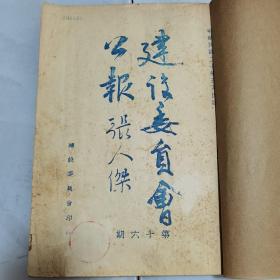 建設委員會
公報
張人傑
第十六期
建設委員會印